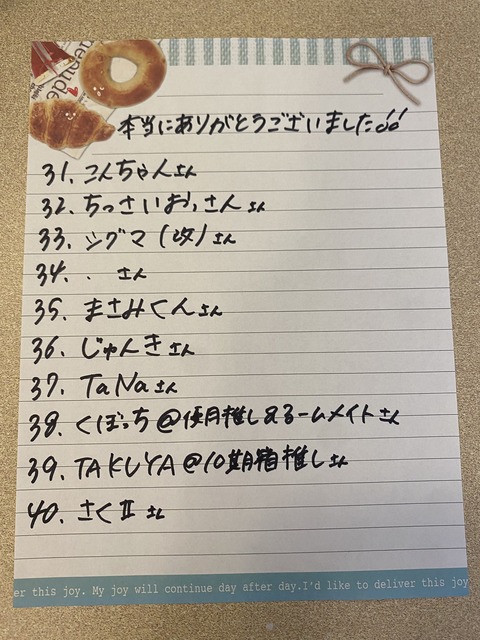 本当にありがとうございました!!
31. こんちゃんさん
32. ちっさいおっさんさん
33. シグマ(改)さん
34. . さん
35. まさみくんさん
36. じゅんきさん
37. TaNaさん
38. くぼっち@優月推し&るームメイトさん
39. TAKUYA@10期箱推しさん
40. さくⅡさん
er this joy. My joy will continue day after day.I'd like to deliver this joy